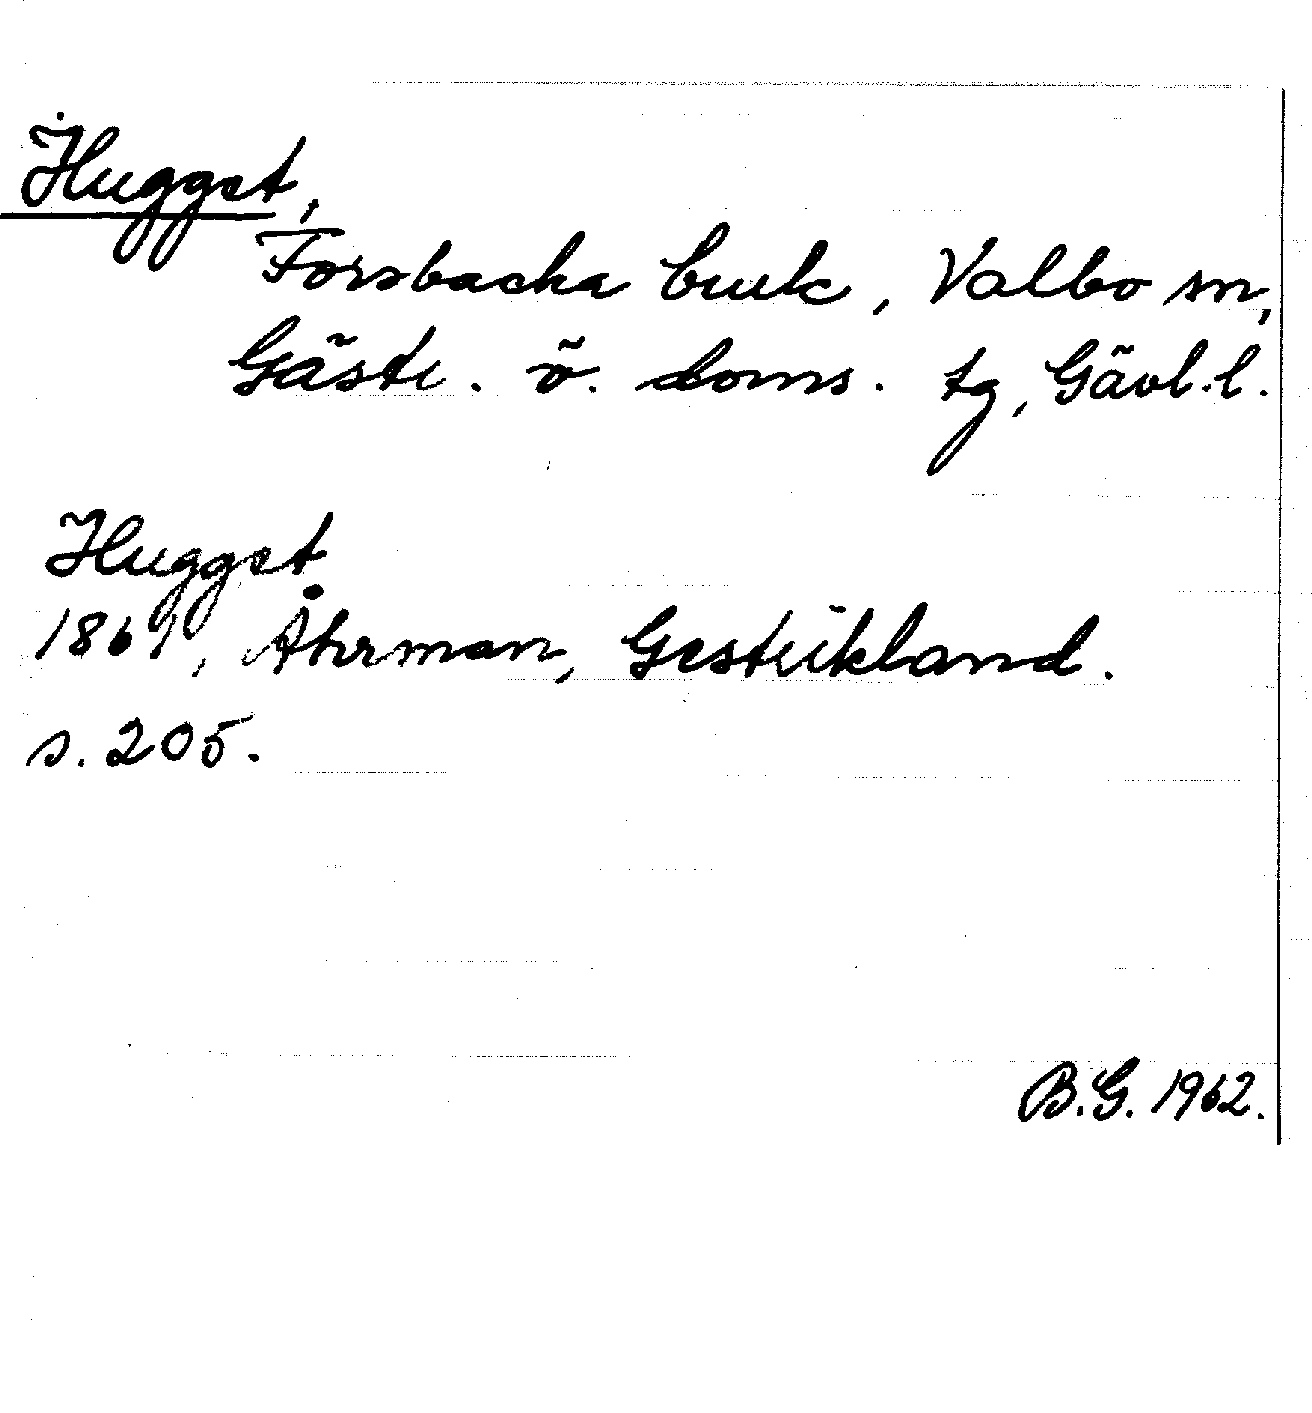 Hugget,
Forsbacka bruk, Valbo sn,
Gästr. ö. doms. tg, Gävl. l.
Hugget
1861, Åhrman, Gestrikland.
s. 205.
B.G. 1962.